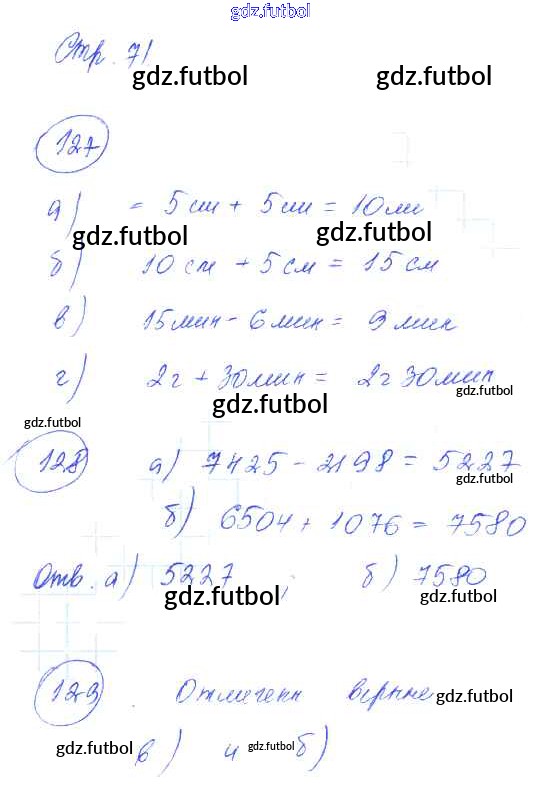 gdz.futbol
Стр. 71
gdz.futbol gdz.futbol
127
а) = 5 см + 5 см = 10 см
gdz.futbol gdz.futbol
б) 10 см + 5 см = 15 см
в) 15 мин - 6 мин = 9 мин
г) 2 г + 30 мин = 2 г 30 мин
gdz.futbol gdz.futbol
gdz.futbol
128 а) 7425 - 2198 = 5227
gdz.futbol
б) 6504 + 1076 = 7580
Отв. а) 5227 ; б) 7580
gdz.futbol gdz.futbol
129. Отмечены верные
gdz.futbol
в) и б)
gdz.futbol gdz.futbol